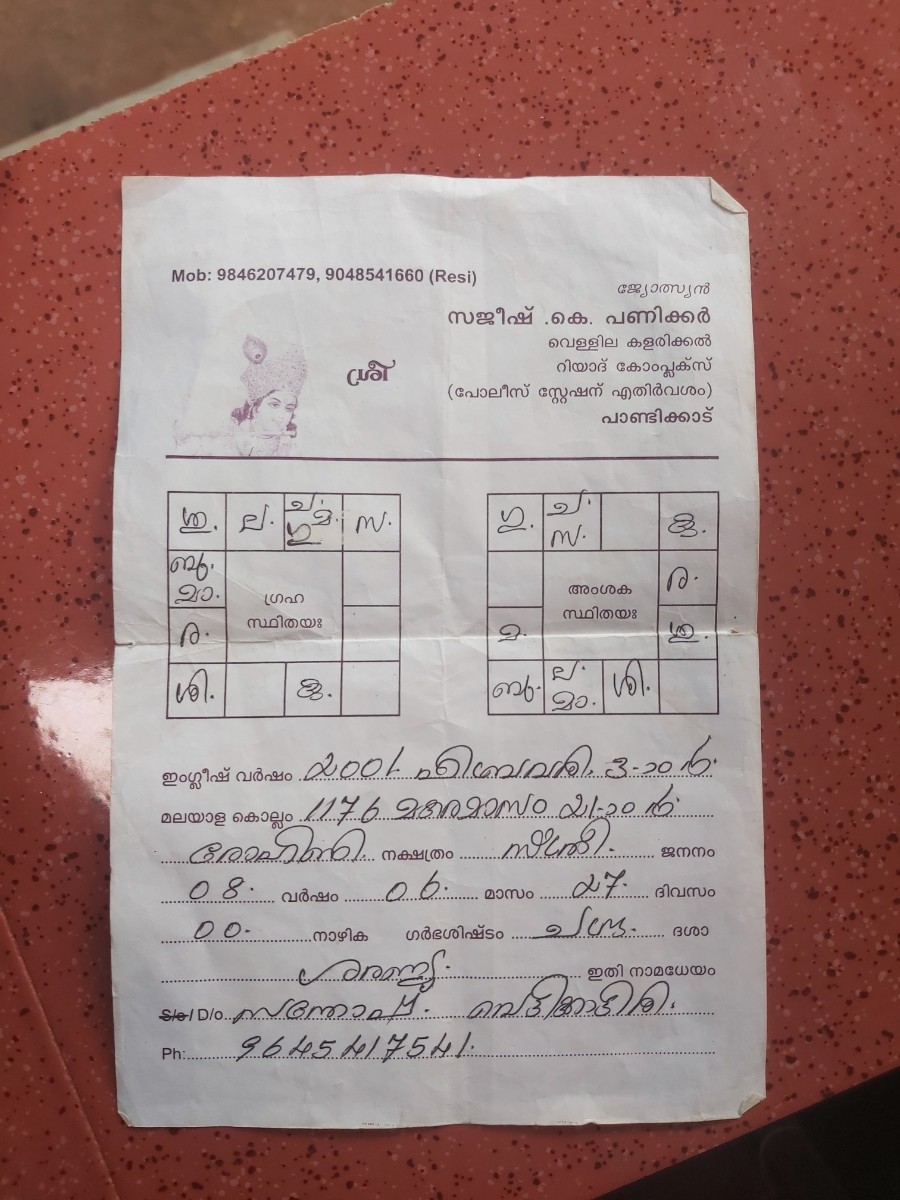 Mob: 9846207479, 9048541660 (Resi)
ജ്യോത്സ്യൻ
സജീഷ് .കെ. പണിക്കർ
വെള്ളില കളരിക്കൽ
റിയാദ് കോംപ്ലക്സ്
(പോലീസ് സ്റ്റേഷന് എതിർവശം)
പാണ്ടിക്കാട്
ശ്രീ
ശു. ല. ച. മ. ഗു സ.
ബു. മാ.
ഗ്രഹ
സ്ഥിതയഃ
ര.
ശി.
ഗു. ച. സ.
അംശക
സ്ഥിതയഃ
ര.
മ. ശു.
ബു. ല. മാ. ശി.
ഇംഗ്ലീഷ് വർഷം 2001 ഫിബ്രവരി. 3-ാം ൻ.
മലയാള കൊല്ലം 1176 മകരമാസം 21-ാം ൻ.
രോഹിണി. നക്ഷത്രം സ്ത്രീ. ജനനം
08. വർഷം 06. മാസം 27. ദിവസം
00. നാഴിക ഗർഭശിഷ്ടം ചന്ദ്ര. ദശാ
ശരണ്യ. ഇതി നാമധേയം
S/o / D/o സന്തോഷ്. വെട്ടിക്കാട്ടിരി.
Ph: 9645417541.